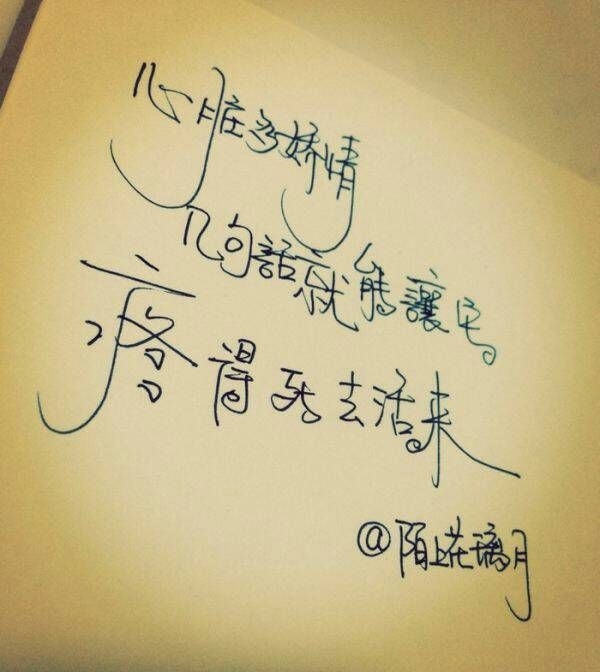 心脏多娇情
几句話就能讓它
疼得死去活来
@陌上花璃月